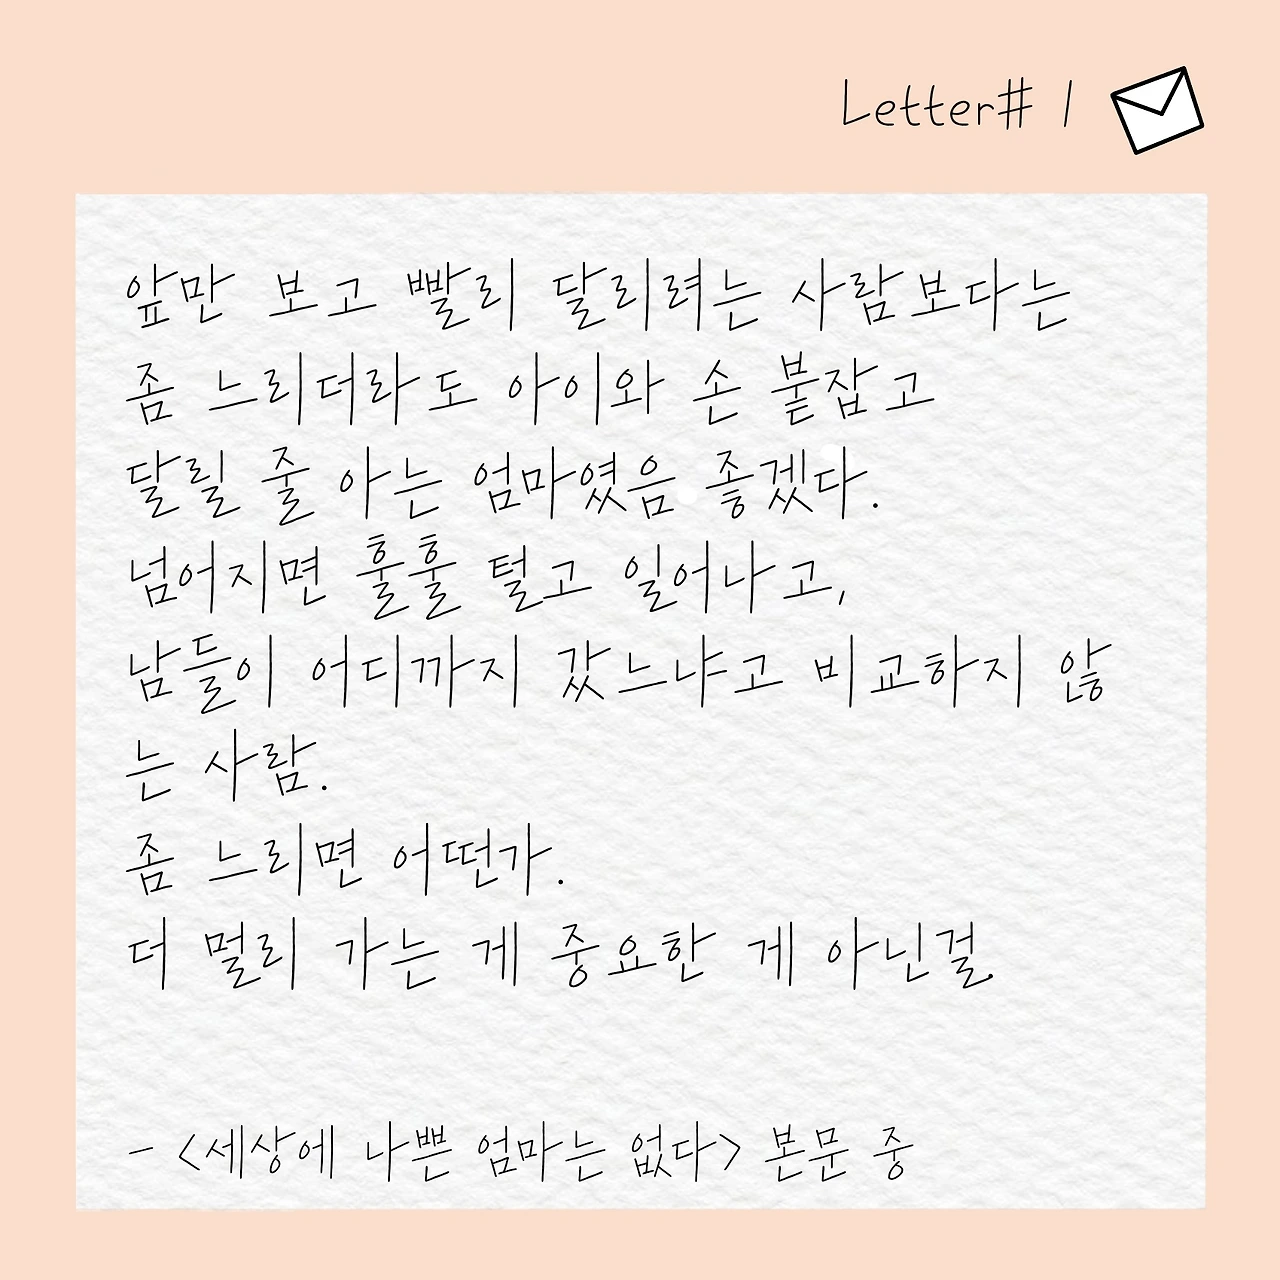 Letter# 1
앞만 보고 빨리 달리려는 사람보다는
좀 느리더라도 아이와 손 붙잡고
달릴 줄 아는 엄마였음 좋겠다.
넘어지면 훌훌 털고 일어나고,
남들이 어디까지 갔느냐고 비교하지 않
는 사람.
좀 느리면 어떤가.
더 멀리 가는 게 중요한 게 아닌걸.
- <세상에 나쁜 엄마는 없다> 본문 중